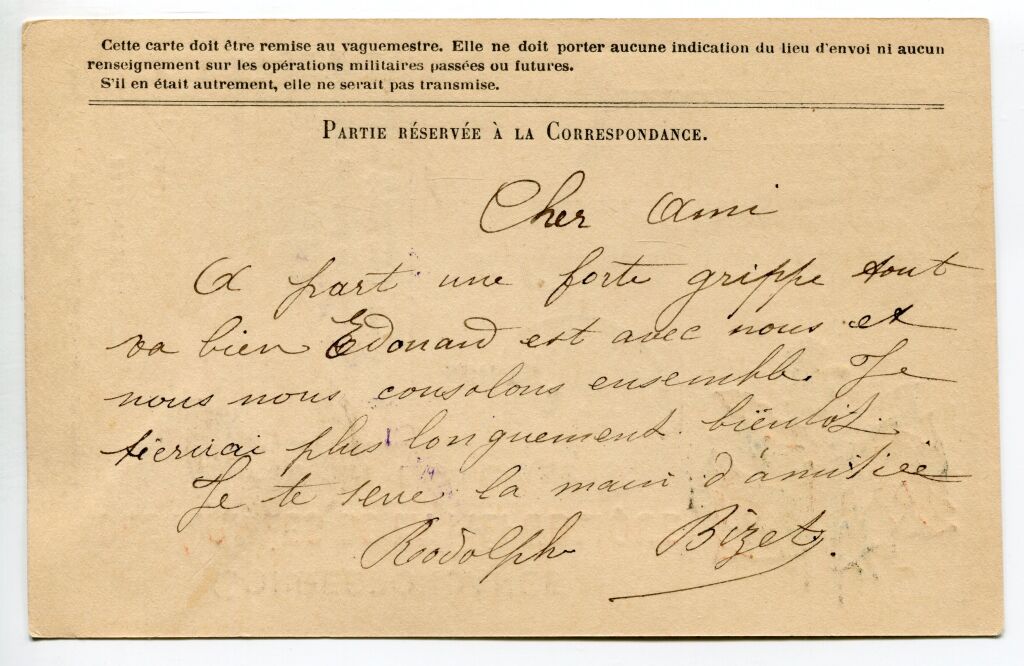 Cette carte doit être remise au vaguemestre. Elle ne doit porter aucune indication du lieu d'envoi ni aucun
renseignement sur les opérations militaires passées ou futures.
S'il en était autrement, elle ne serait pas transmise.
PARTIE RÉSERVÉE À LA CORRESPONDANCE.
Cher Ami
A part une forte grippe tout
va bien Edouard est avec nous et
nous nous consolons ensemble. Je
t'écrirai plus longuement bientôt.
Je te serre la main d'amitiée
Rodolphe Bizet.